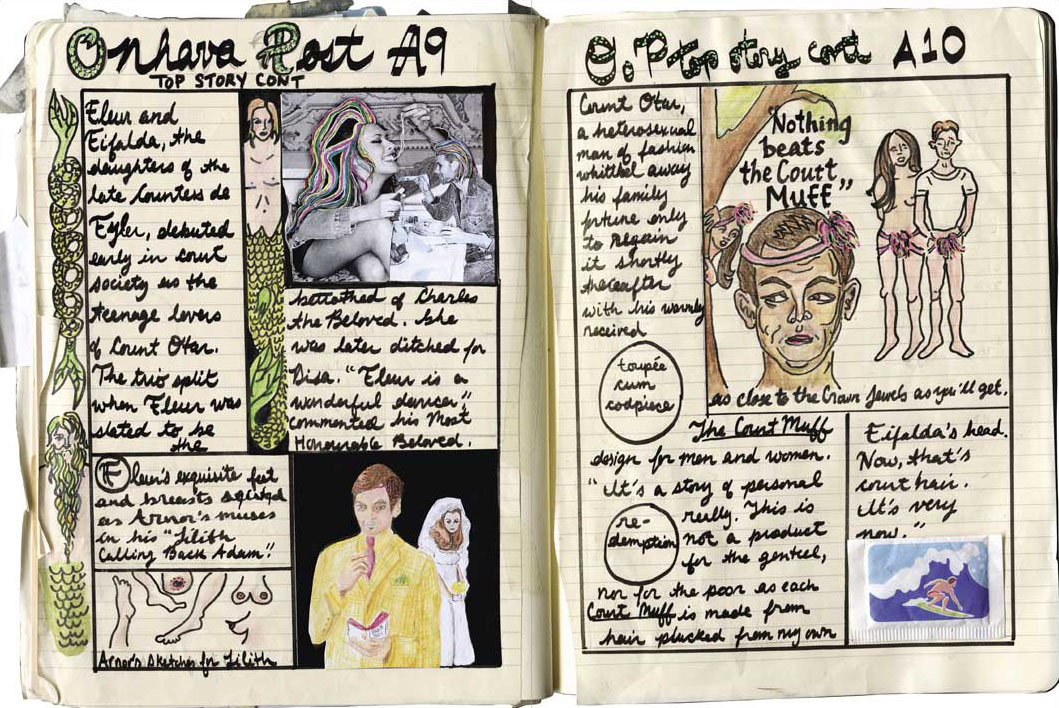 Onhava Post A9
TOP STORY CONT
Fleur and
Eifalda, the
daughters of the
late Countess de
Fyler, debuted
early in court
society as the
teenage lovers
of Count Otar.
The trio split
when Fleur was
slated to be
the
betrothed of Charles
the Beloved. She
was later ditched for
Disa. "Fleur is a
wonderful dancer,"
commented his Most
Honourable Beloved.
Fleur's exquisite feet
and breasts
as Arnor's muses
in his "Lilith
Calling Back Adam."
Arnor's sketches for Lilith
O. P. top story cont A10
Count Otar,
a heterosexual
man of fashion
whittled away
his family
fortune only
to regain
it shortly
thereafter
with his warmly
received
toupée
cum
codpiece
"Nothing
beats
the Court
Muff"
as close to the Crown Jewels as you'll get.
The Court Muff
design for men and women.
"It's a story of personal
re-
demption
really. This is
not a product
for the genteel,
nor for the poor as each
Court Muff is made from
hair plucked from my own
Eifalda's head.
Now, that's
court hair.
It's very
now."